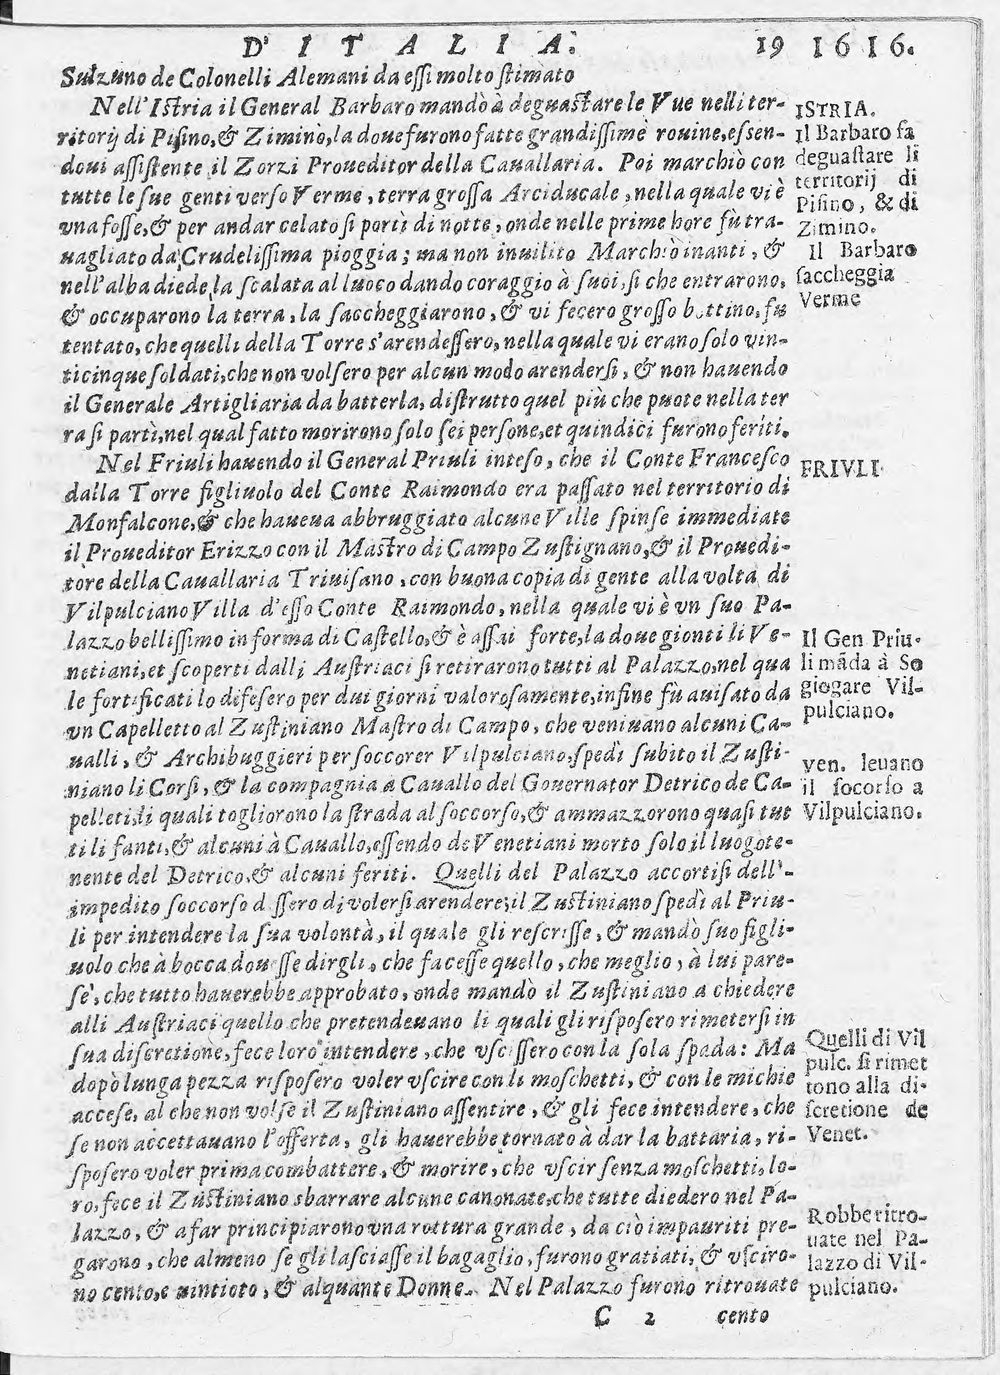 D' I T A L I A. 19 1616.
Sulzuno de Colonelli Alemani da essi molto stimato
Nell'Istria il General Barbaro mandò à deguastare le Vue nelli ter-
ritorij di Pisino,& Ziminò,la doue furono fatte grandissime rouine,essen-
doui assistente il Zorzi Proueditor della Cauallaria. Poi marchiò con
tutte le sue genti verso Verme, terra grossa Arciducale, nella quale vi è
vna fosse,& per andar celato si partì di notte, onde nelle prime hore fù tra-
uagliato da Crudelissima pioggia; ma non inuilito Marchiò inanti, &
nell'alba diede la scalata al luoco dando coraggio à suoi, si che entrarono,
& occuparono la terra, la saccheggiarono, & vi fecero grosso bottino, fu
tentato, che quelli della Torre s'arendessero, nella quale vi erano solo vin-
ticinque soldati,che non volsero per alcun modo arendersi, & non hauendo
il Generale Artigliaria da batterla, distrutto quel più che puote nella ter
ra si partì,nel qual fatto morirono solo sei persone,et quindici furono feriti.
Nel Friuli hauendo il General Priuli inteso, che il Conte Francesco
dalla Torre figliuolo del Conte Raimondo era passato nel territorio di
Monfalcone,& che haueua abbruggiato alcune Ville spinse immediate
il Proueditor Erizzo con il Mastro di Campo Zustignano,& il Prouedi-
tore della Cauallaria Triuisano, con buona copia di gente alla volta di
Vilpulciano Villa d'esso Conte Raimondo, nella quale vi è vn suo Pa-
lazzo bellissimo in forma di Castello,& è assai forte,la doue gionti li Ve-
netiani,et scoperti dalli Austriaci si retirarono tutti al Palazzo,nel qua
le fortificati lo difesero per dui giorni valorosamente,infine fù auisato da
vn Capelletto al Zustiniano Mastro di Campo, che veniuano alcuni Ca-
ualli, & Archibuggieri per soccorer Vilpulciano,spedì subito il Zusti-
niano li Corsi, & la compagnia à Cauallo del Gouernator Detrico de Ca-
pelleti,li quali togliorono la strada al soccorso,& ammazzorono quasi tut
ti li fanti,& alcuni à Cauallo,essendo de Venetiani morto solo il luogote-
nente del Detrico,& alcuni feriti. Quelli del Palazzo accortisi dell'-
impedito soccorso dissero di volersi arendere,il Zustiniano spedì al Priu-
li per intendere la sua volontà, il quale gli rescrisse, & mandò suo figli-
uolo che à bocca douesse dirgli, che facesse quello, che meglio, à lui pare-
se, che tutto hauerebbe approbato, onde mandò il Zustiniano a chiedere
alli Austriaci quello che pretendeuano li quali gli risposero rimetersi in
sua discretione, fece loro intendere, che vscissero con la sola spada: Ma
dopò lunga pezza risposero voler vscire con li moschetti, & con le michie
accese, al che non volse il Zustiniano assentire, & gli fece intendere, che
se non accettauano l'offerta, gli hauerebbe tornato à dar la battaria, ri-
sposero voler prima combattere, & morire, che vscir senza moschetti, lo-
ro, fece il Zustiniano sbarrare alcune canonate,che tutte diedero nel Pa-
lazzo, & a far principiarono vna rottura grande, da ciò impauriti pre-
garono, che almeno se gli lasciasse il bagaglio, furono gratiati, & vsciro-
no cento,e uintioto, & alquante Donne. Nel Palazzo furono ritrouate
C 2 cento
ISTRIA.
Il Barbaro fa
deguastare li
territorij di
Pisino, & di
Zimino.
Il Barbaro
saccheggia
Verme
FRIVLI
Il Gen Priu-
li mãda à So
giogare Vil-
pulciano.
ven. leuano
il socorso a
Vilpulciano.
Quelli di Vil
pulc. si rimet
tono alla di-
scretione de
Venet.
Robbe ritro-
uate nel Pa-
lazzo di Vil-
pulciano.